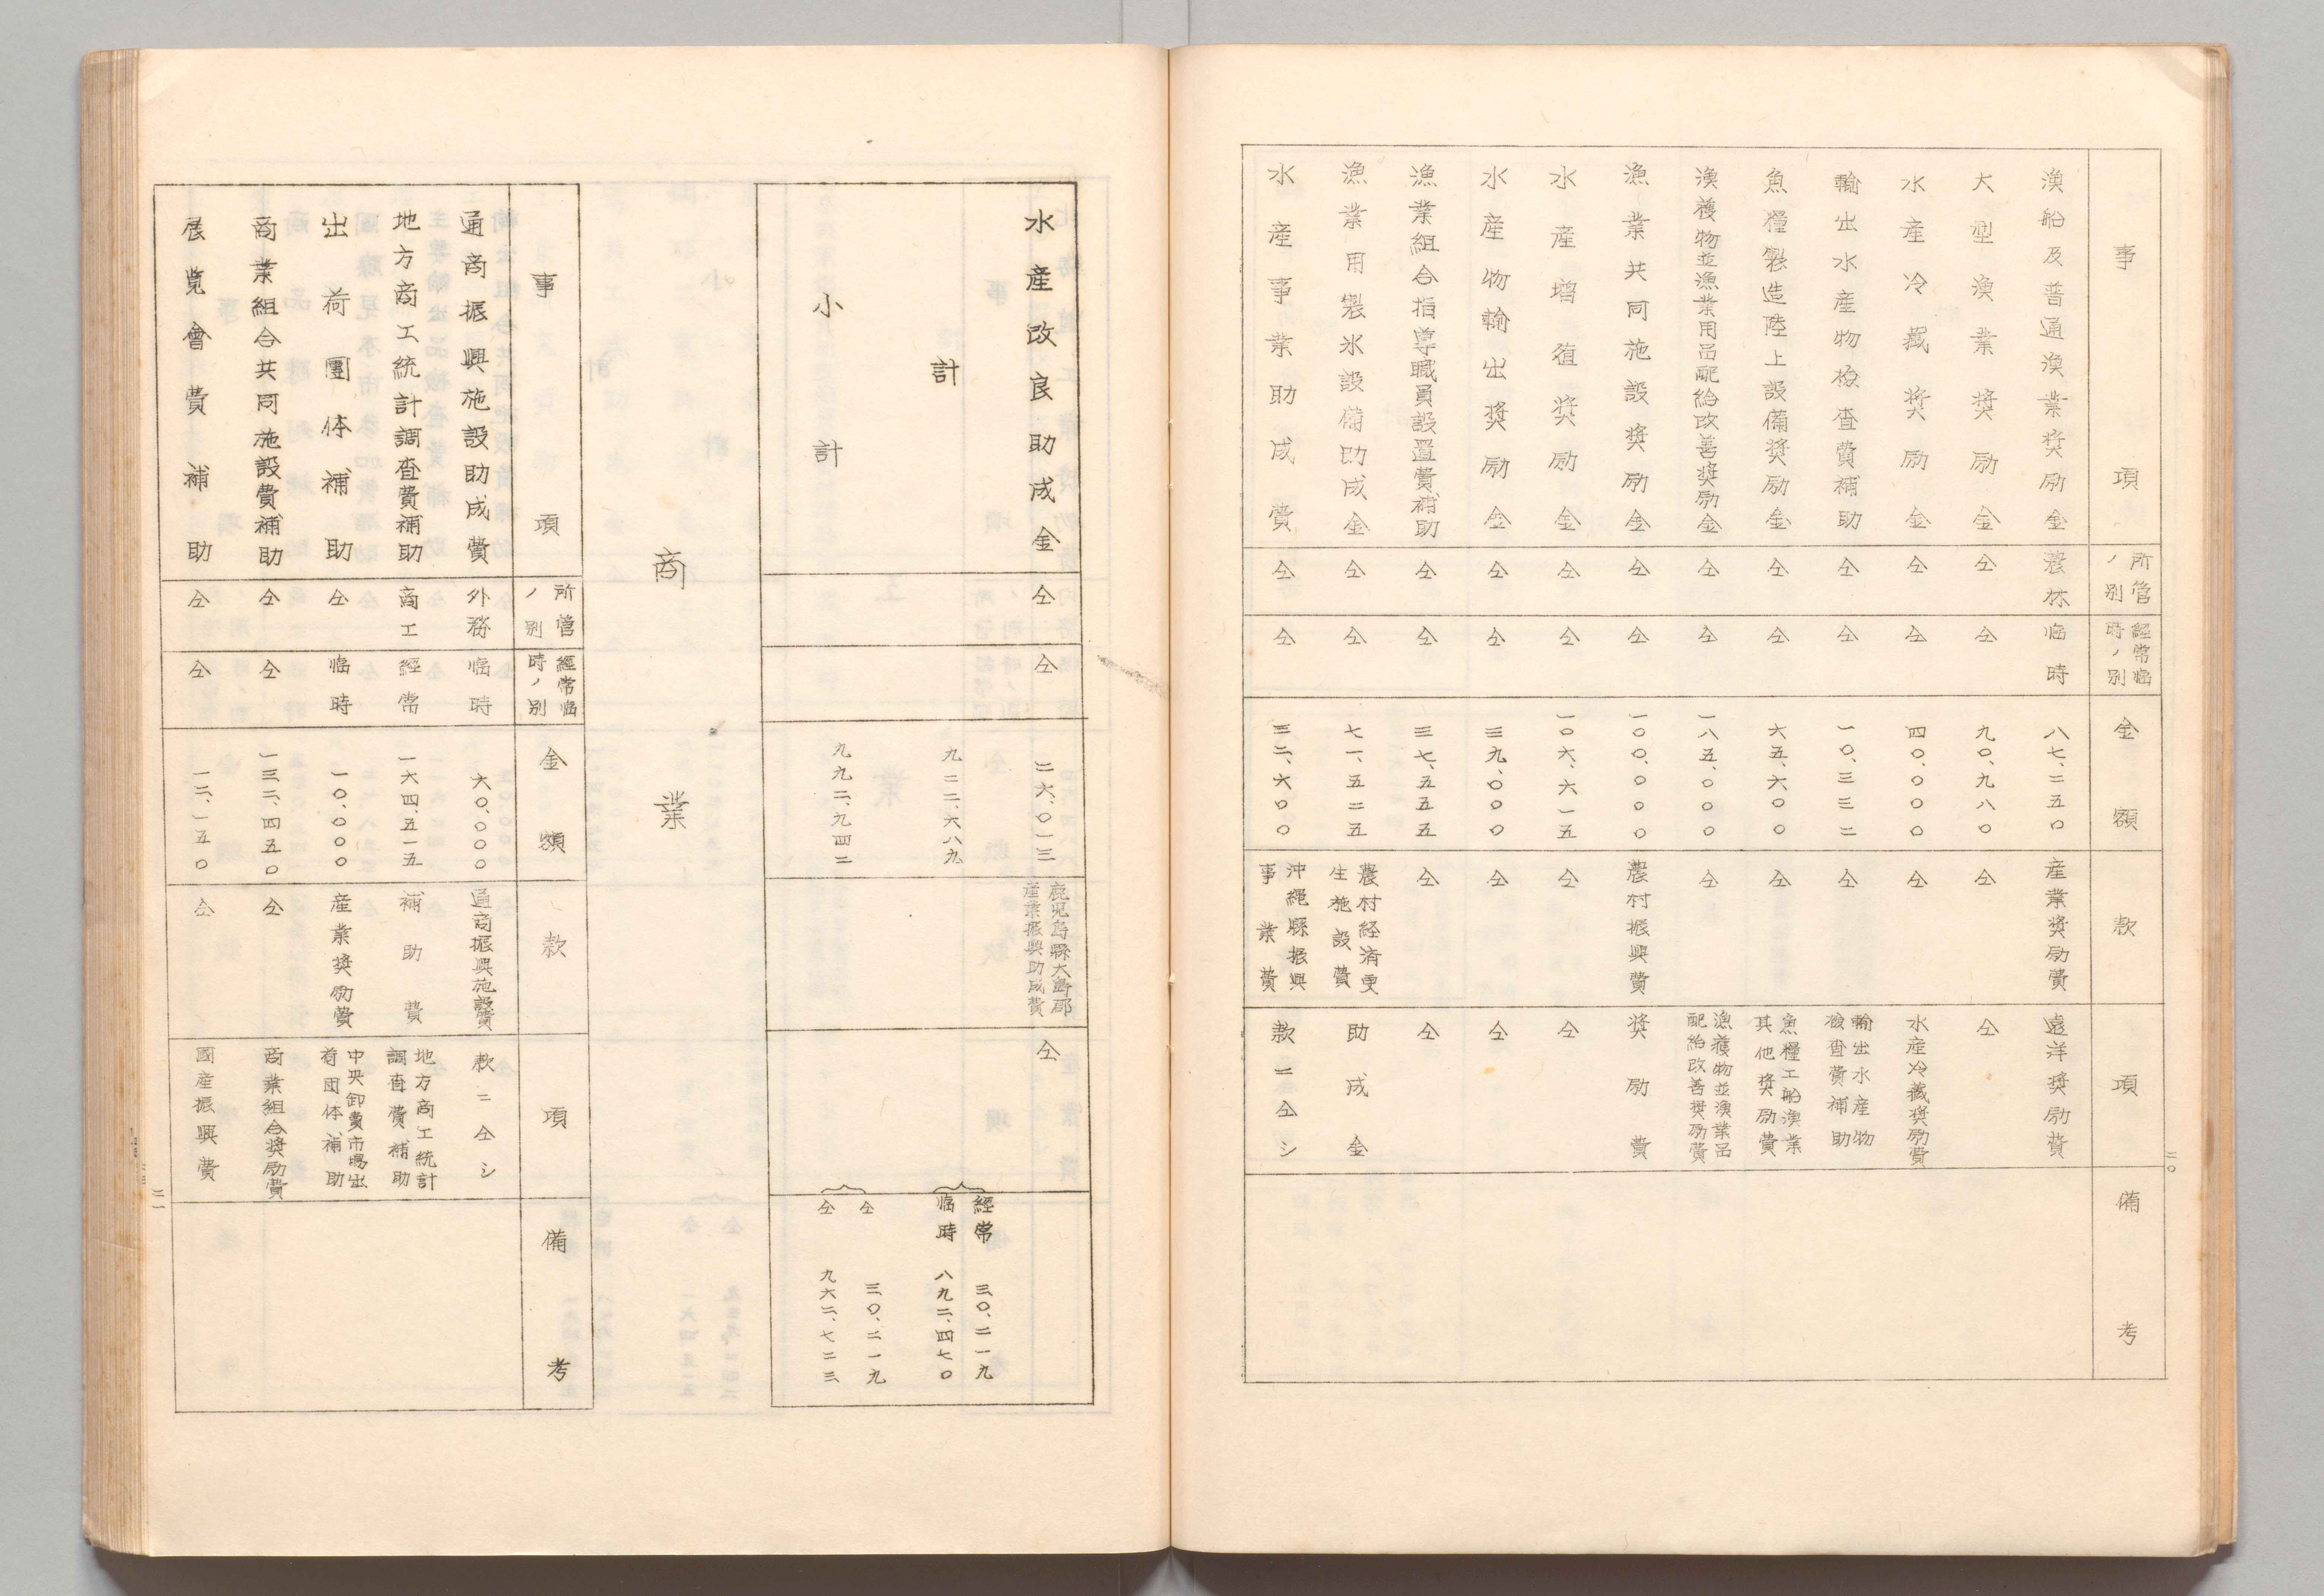 事項 所管ノ別 經常臨時ノ別 金額 款 項 備考
漁船及普通漁業奨励金 農林 臨時 八七、二五〇 産業奨励費 遠洋奨励費
大型漁業奨励金 仝 仝 九〇、九八〇 仝 仝
水産冷藏奨励金 仝 仝 四〇、〇〇〇 仝 水産冷藏奨励費
輸出水産物檢査費補助 仝 仝 一〇、三三二 仝 輸出水産物檢査費補助
魚糧製造陸上設備奨励金 仝 仝 六五、六〇〇 仝 魚糧工船漁業其他奨励費
漁獲物並漁業用品配給改善奨励金 仝 仝 一八五、〇〇〇 仝 漁獲物並漁業品配給改善奨励費
漁業共同施設奨励金 仝 仝 一〇〇、〇〇〇 農村振興費 奨励費
水産増殖奨励金 仝 仝 一〇六、六一五 仝 仝
水産物輸出奨励金 仝 仝 三九、〇〇〇 仝 仝
漁業組合指導職員設置費補助 仝 仝 三七、五五五 仝 仝
漁業用製氷設備助成金 仝 仝 七一、五二五 農村経済更生施設費 助成金
水産事業助成費 仝 仝 三二、六〇〇 沖縄縣振興事業費 款ニ仝シ
二〇
水産改良助成金 仝 仝 二六、〇一三 鹿児島縣大島郡産業振興助成費 仝
計 九二二、六八九 經常 三〇、二一九
臨時 八九二、四七〇
小計 九九二、九四二 仝 三〇、二一九
仝 九六二、七二三
商業
事項 所管ノ別 經常臨時ノ別 金額 款 項 備考
通商振興施設助成費 外務 臨時 六〇、〇〇〇 通商振興施設費 款ニ仝シ
地方商工統計調査費補助 商工 經常 一六四、五一五 補助費 地方商工統計調査費補助
出荷團体補助 仝 臨時 一〇、〇〇〇 産業奨励費 中央卸賣市場出荷団体補助
商業組合共同施設費補助 仝 仝 一三二、四五〇 仝 商業組合奨励費
展覧會費補助 仝 仝 一二、一五〇 仝 國産振興費
二一